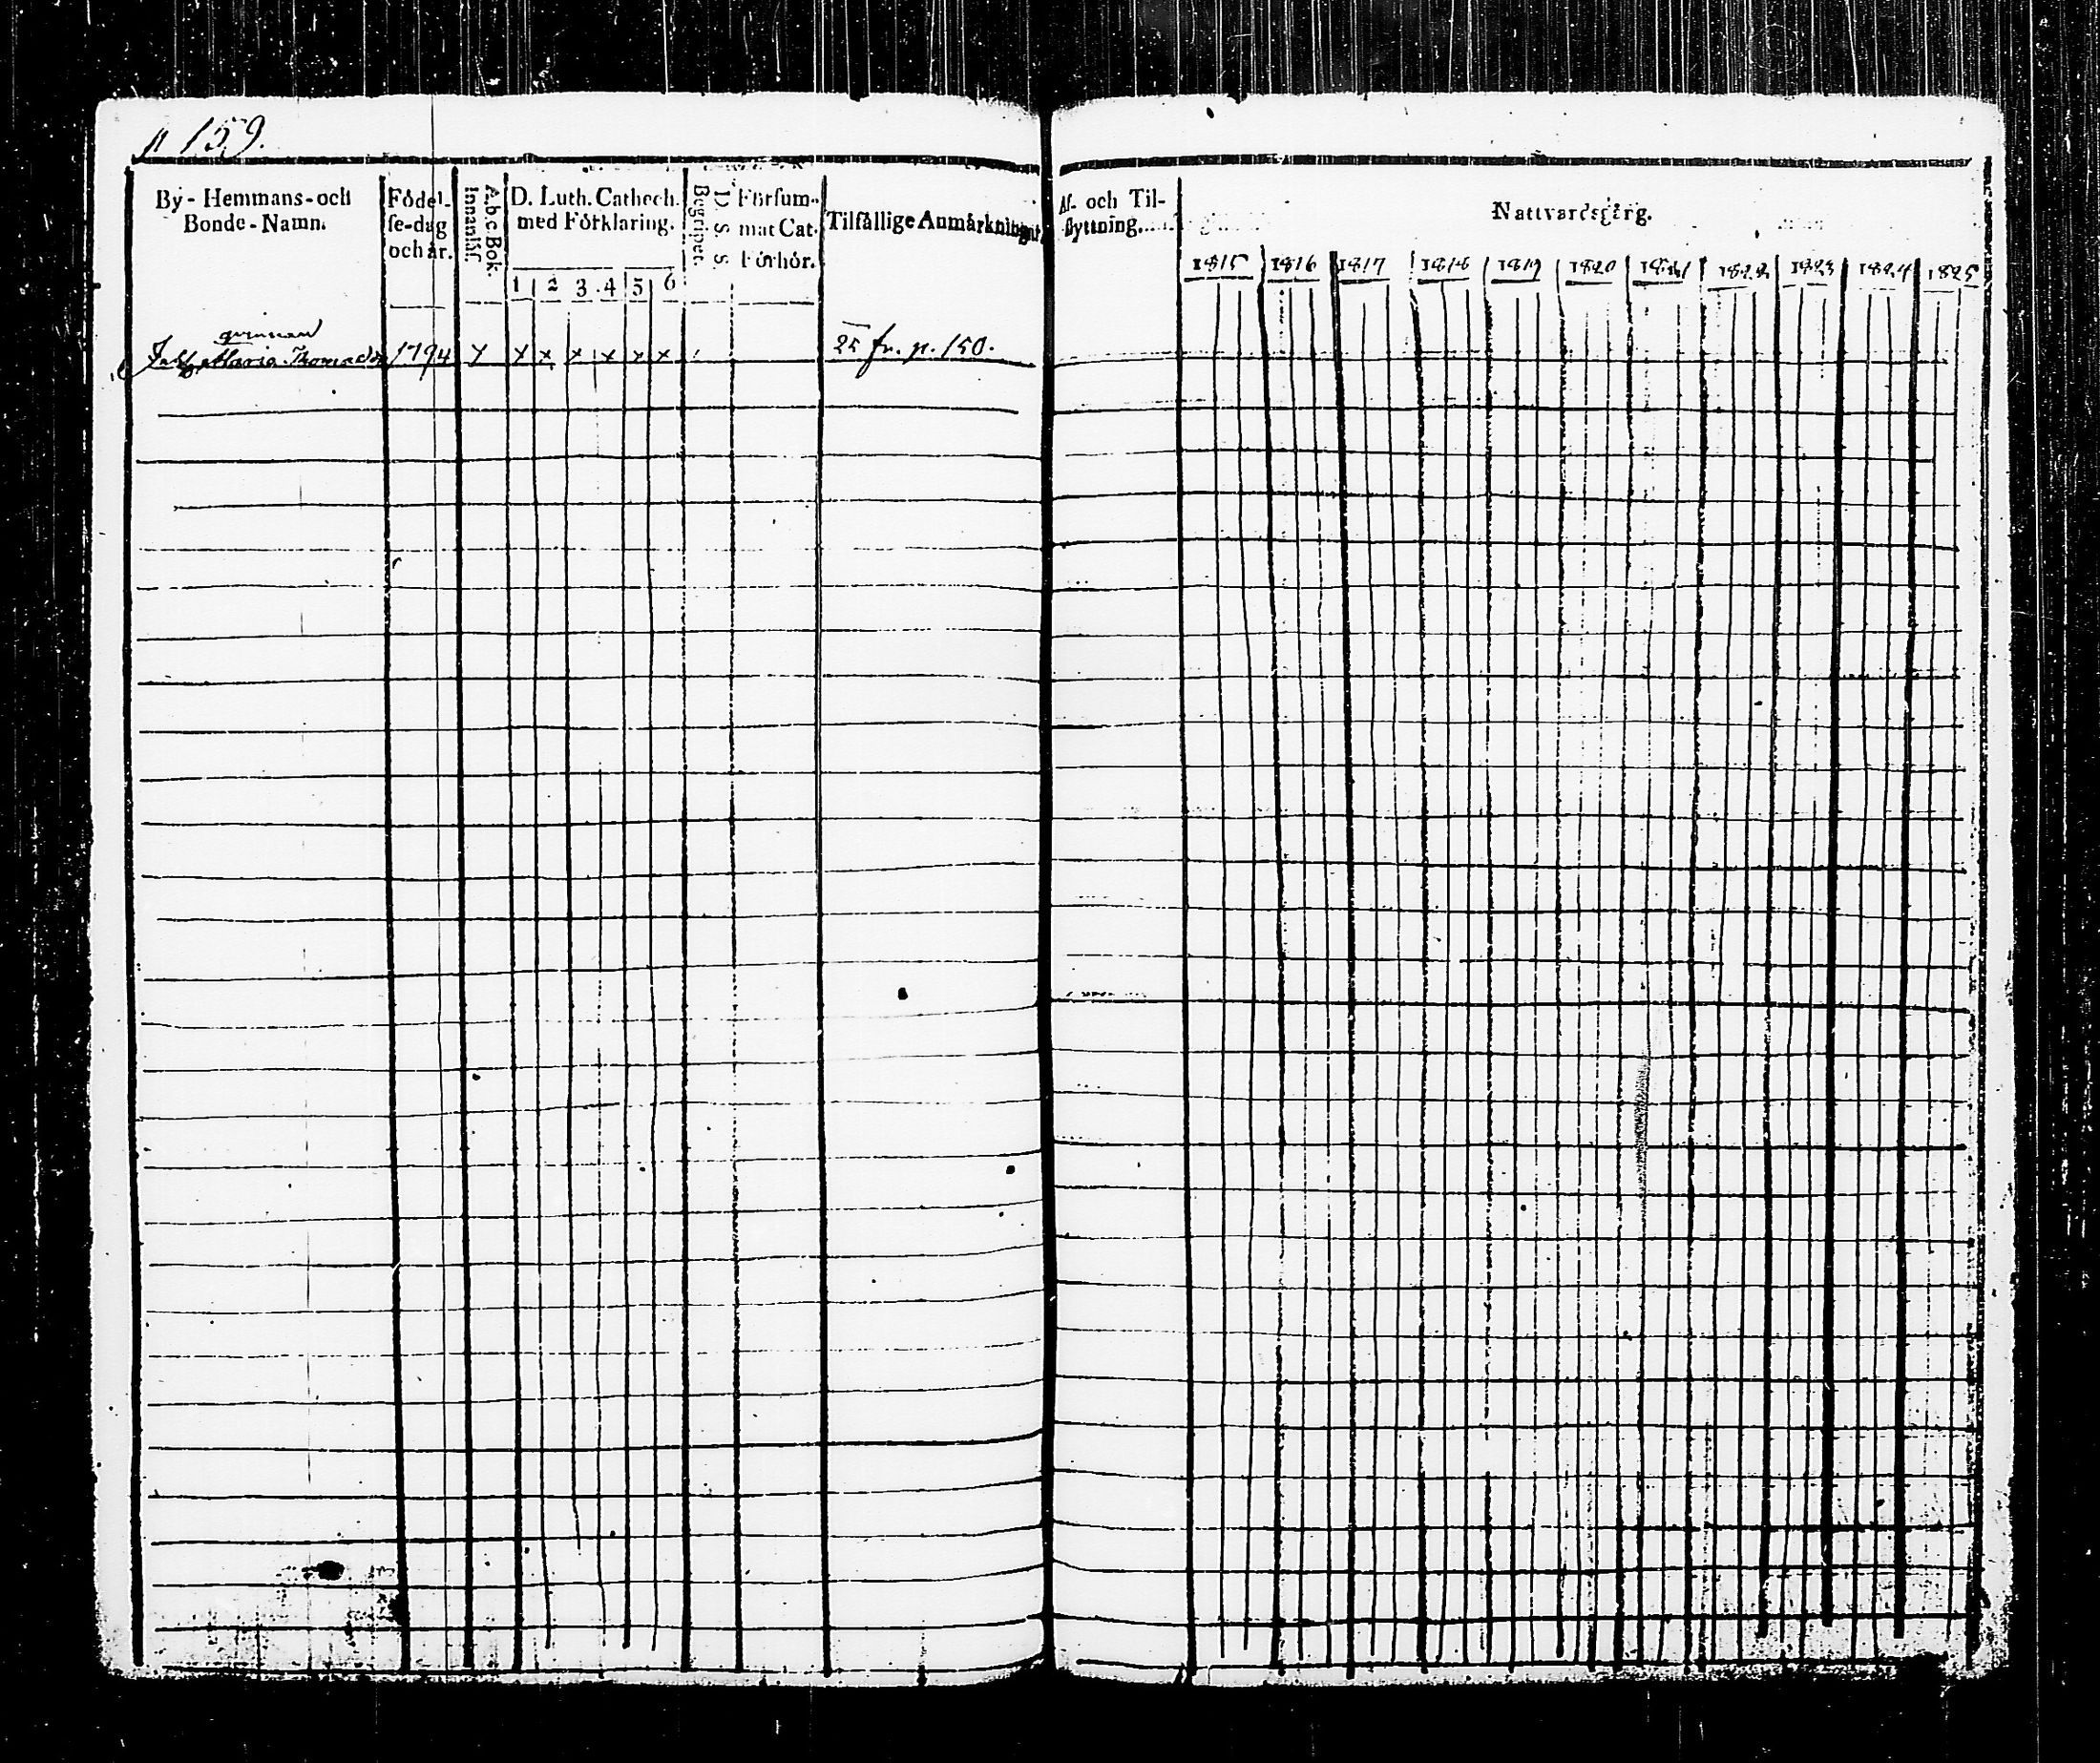 p 159.
By-Hemmans-och
Bonde-Namn.
Födel-
se-dag
och år.
Innanläs.
A.b.c Bok.
D. Luth. Cathech.
med Förklaring.
1 2 3 4 5 6
Begripet.
D. S. S.
Försum-
mat Cat.
Förhör.
Tilfällige Anmärkningar.
qvinnan
Maria Thomasdr 1794 x x x x x x x
25 fr. p. 150.
Af- och Til-
flyttning.
Nattvardsgång.
1815 1816 1817 1818 1819 1820 1821 1822 1823 1824 1825